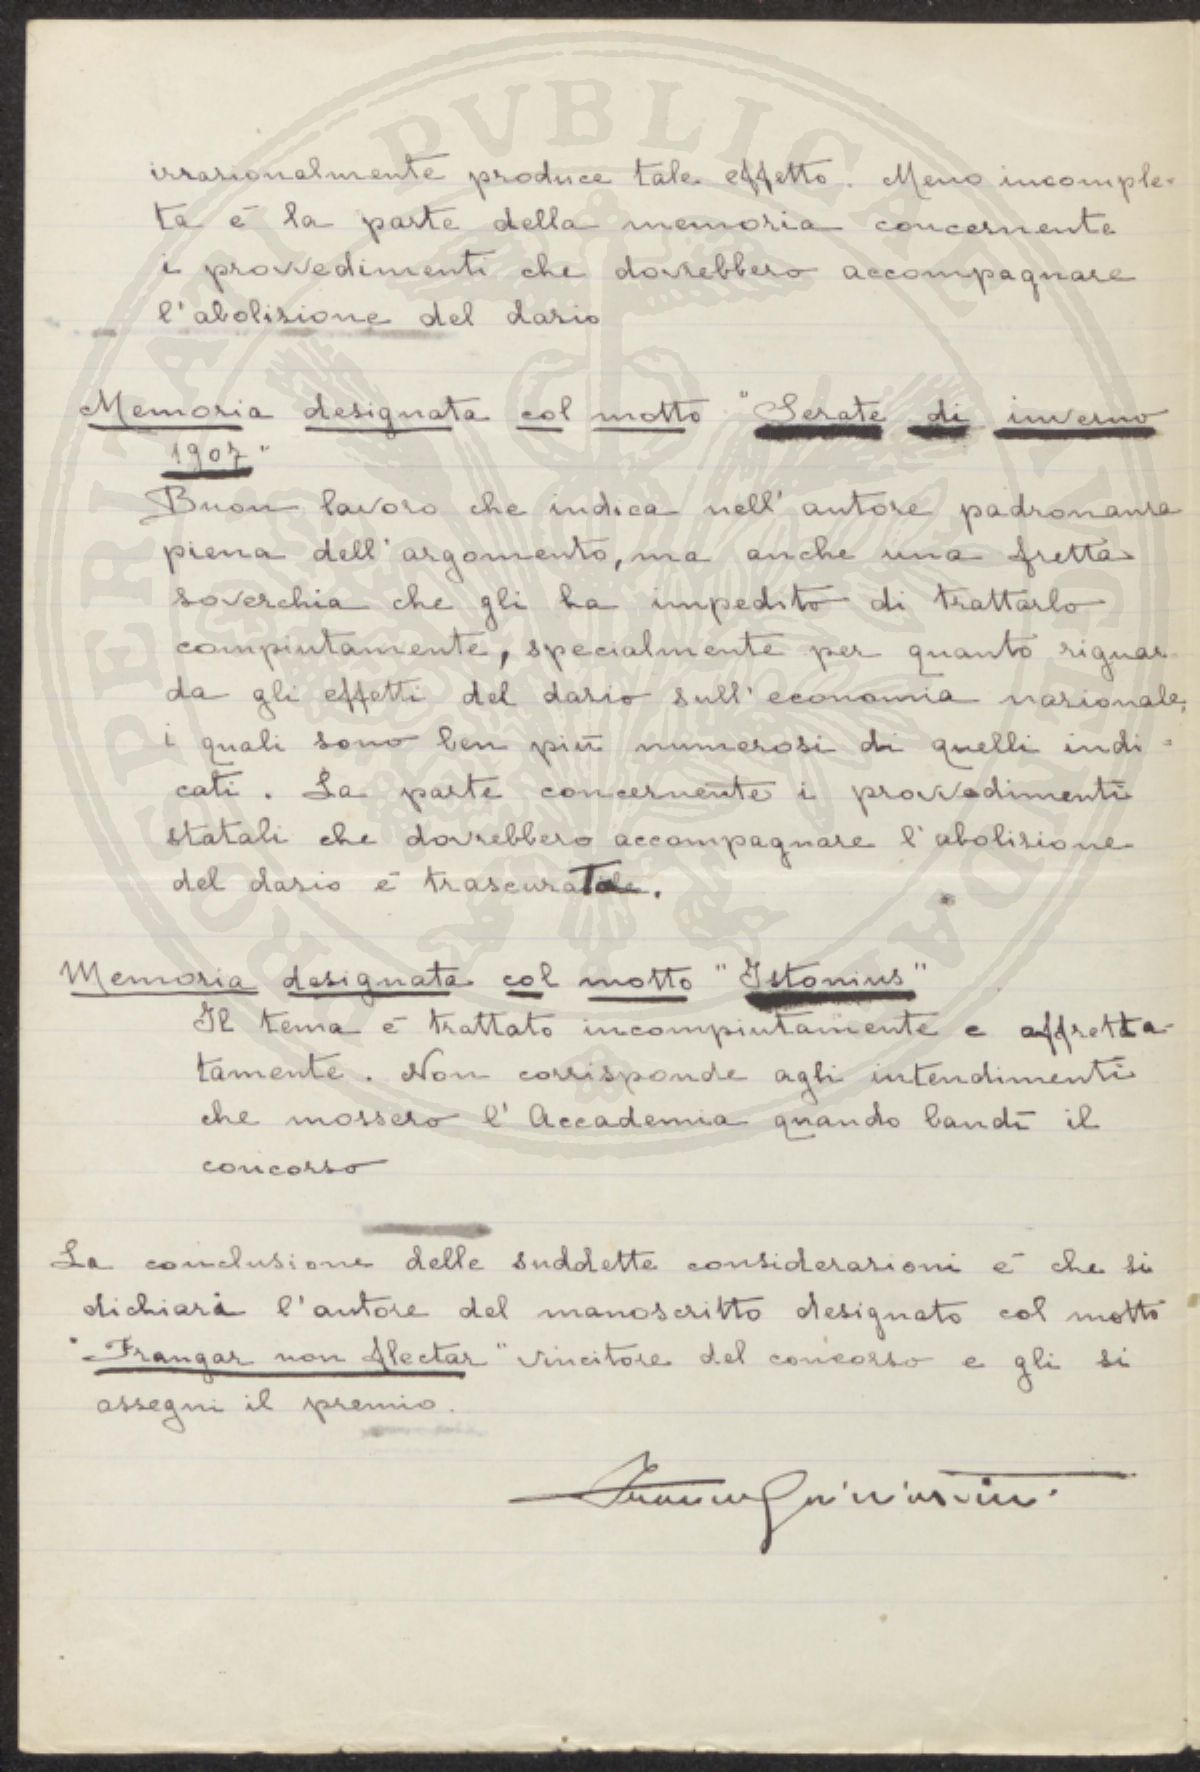 irrazionalmente produce tale effetto. Meno incomple-
ta è la parte della memoria concernente
i provvedimenti che dovrebbero accompagnare
l'abolizione del dazio
Memoria designata col motto "Serate di inverno
1907"
Buon lavoro che indica nell'autore padronanza
piena dell'argomento, ma anche una fretta
soverchia che gli ha impedito di trattarlo
compiutamente, specialmente per quanto riguar-
da gli effetti del dazio sull'economia nazionale,
i quali sono ben più numerosi di quelli indi-
cati. La parte concernente i provvedimenti
statali che dovrebbero accompagnare l'abolizione
del dazio è
Memoria designata col motto "Istonius"
Il tema è trattato incompiutamente e affretta-
tamente. Non corrisponde agli intendimenti
che mossero l'Accademia quando bandì il
concorso
La conclusione delle suddette considerazioni è che si
dichiari l'autore del manoscritto designato col motto
"Frangar non flectar" vincitore del concorso e gli si
assegni il premio.
PVBLICAE
PROSPERITATI